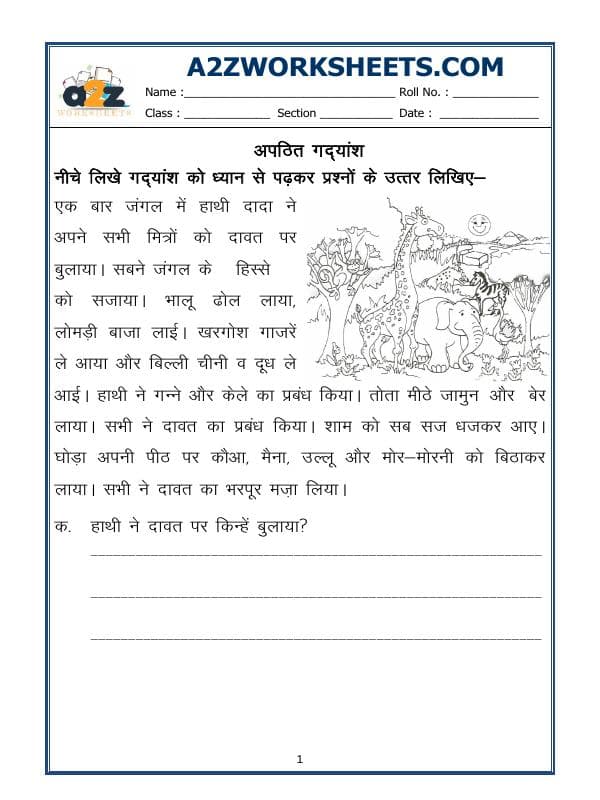 A2ZWORKSHEETS.COM
a2z
WORKSHEETS
Name :______________________________ Roll No. : ____________
Class : ____________ Section __________ Date : ______________
अपठित गद्यांश
नीचे लिखे गद्यांश को ध्यान से पढ़कर प्रश्नों के उत्तर लिखिए–
एक बार जंगल में हाथी दादा ने
अपने सभी मित्रों को दावत पर
बुलाया। सबने जंगल के हिस्से
को सजाया। भालू ढोल लाया,
लोमड़ी बाजा लाई। खरगोश गाजरें
ले आया और बिल्ली चीनी व दूध ले
आई। हाथी ने गन्ने और केले का प्रबंध किया। तोता मीठे जामुन और बेर
लाया। सभी ने दावत का प्रबंध किया। शाम को सब सज धजकर आए।
घोड़ा अपनी पीठ पर कौआ, मैना, उल्लू और मोर–मोरनी को बिठाकर
लाया। सभी ने दावत का भरपूर मज़ा लिया।
क. हाथी ने दावत पर किन्हें बुलाया?
1